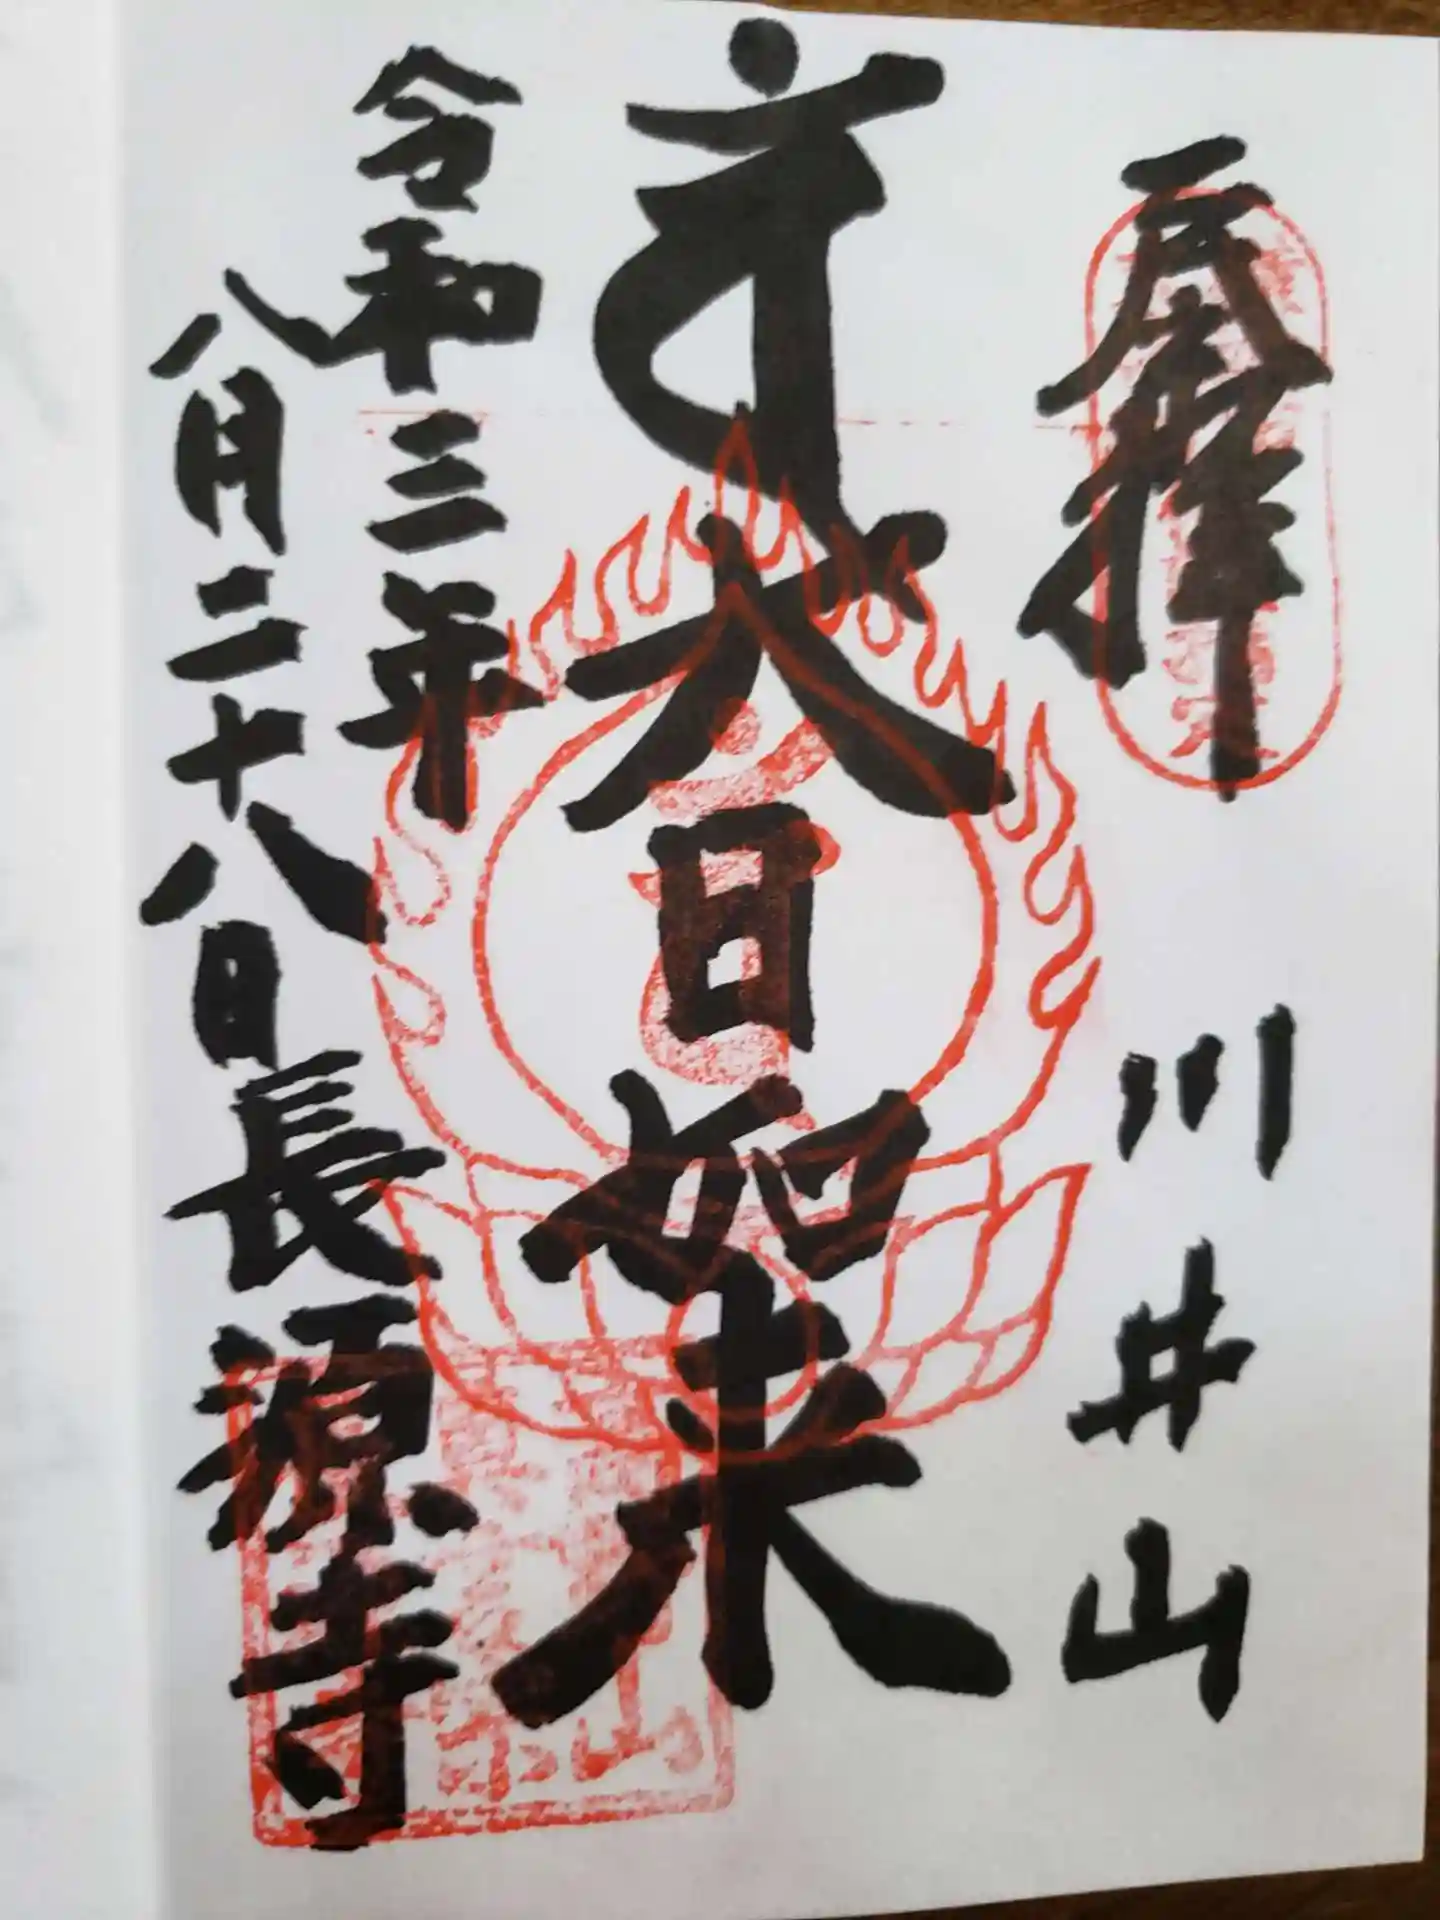 奉拝
川井山
大日如来
令和三年
八月二十八日
長源寺